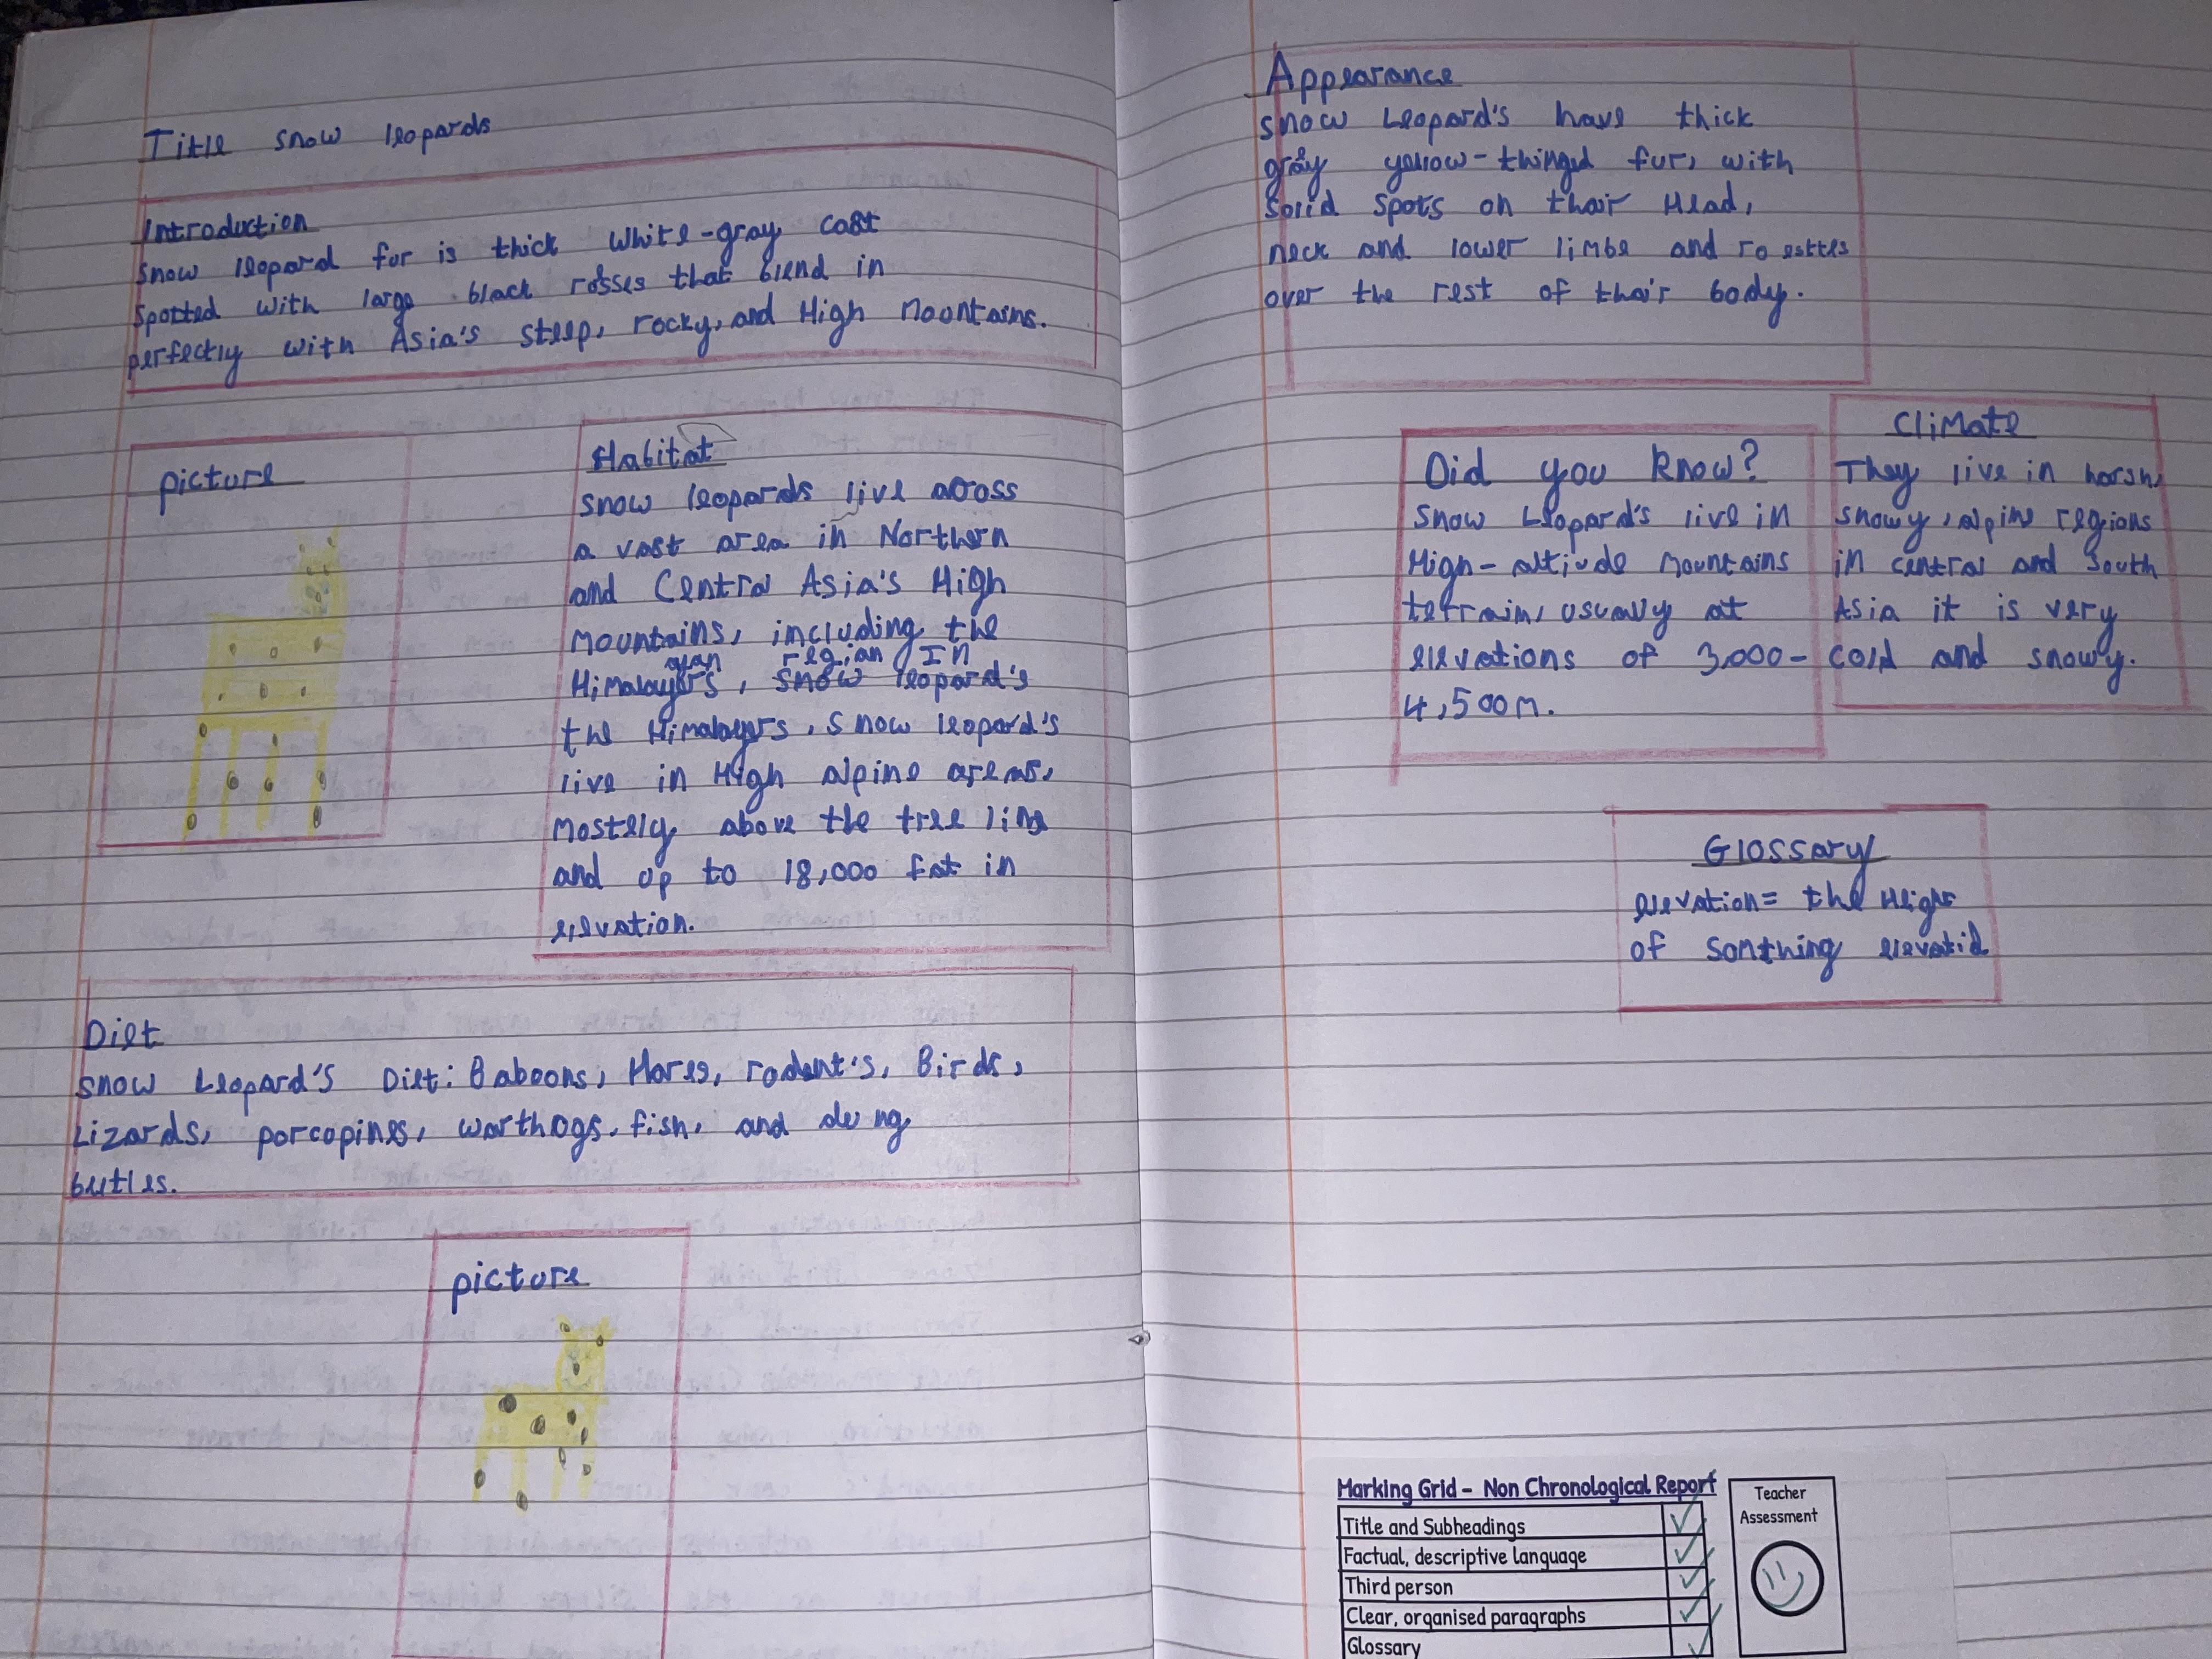 Title snow leopards
Introduction
Snow leopard fur is thick white-gray coat
spotted with large black rosses that blend in
perfectly with Asia's steep, rocky, and High Mountains.
picture
Habitat
snow leopards live aross
a vast area in Northern
and Central Asia's High
Mountains, including the
yan region In
Himalayers, snow leopard's
the Himalayers, snow leopard's
live in High alpine areas,
Mostely above the tree line
and up to 18,000 fet in
elevation.
Diet
snow Leopard's Diet: Baboons, Hares, rodent's, Birds,
Lizards, porcopines, worthogs, fish, and deung
beetles.
picture
Appearance
Snow Leopard's have thick
gray yellow-thinged fur, with
Solid Spots on thair Head,
neck and lower limbe and roesttes
over the rest of thair body.
Did you know?
Snow Leopard's live in
High-altiude Mountains
terrain, usually at
elevations of 3,000-
4,500m.
Climate
They live in harsh,
snowy, alpine regions
in central and South
Asia it is very
cold and snowy.
Glossary
elevation= the Height
of Somthing elevatid
Marking Grid – Non Chronological Report
Title and Subheadings ✓
Factual, descriptive language ✓
Third person ✓
Clear, organised paragraphs ✓
Glossary ✓
Teacher
Assessment